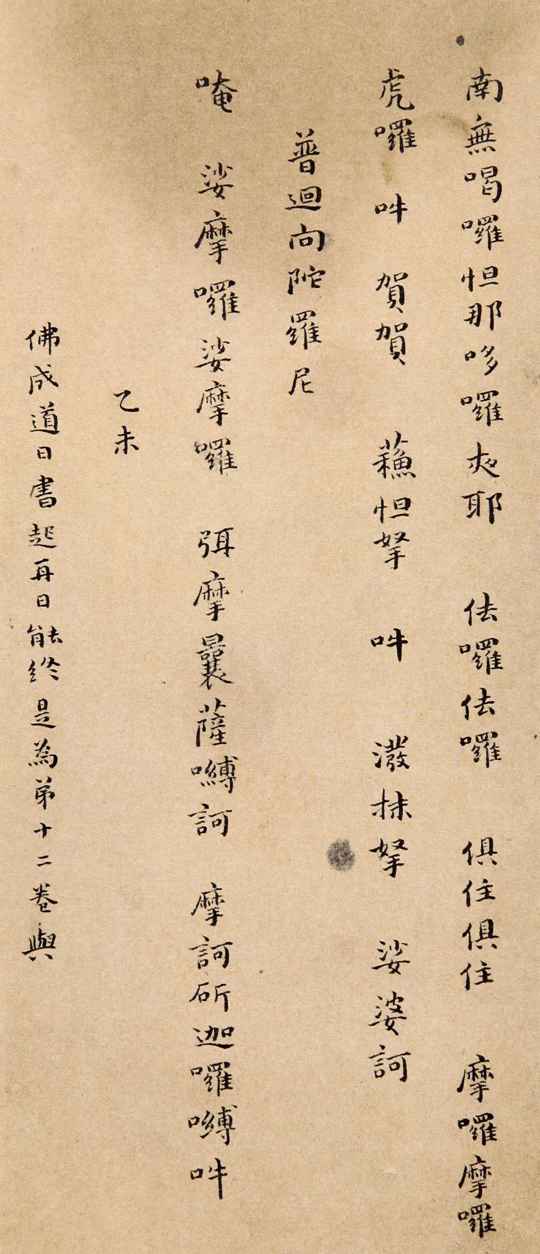 南無喝囉怛那哆囉夜耶 佉囉佉囉 俱住俱住 摩囉摩囉
虎囉 吽 賀賀 蘓怛拏 吽 潑抹拏 娑婆訶
普迴向陀羅尼
唵 娑摩囉娑摩囉 弭摩曩薩嚩訶 摩訶斫迦囉嚩吽
乙未
佛成道日書起再日能終是為弟十二卷與